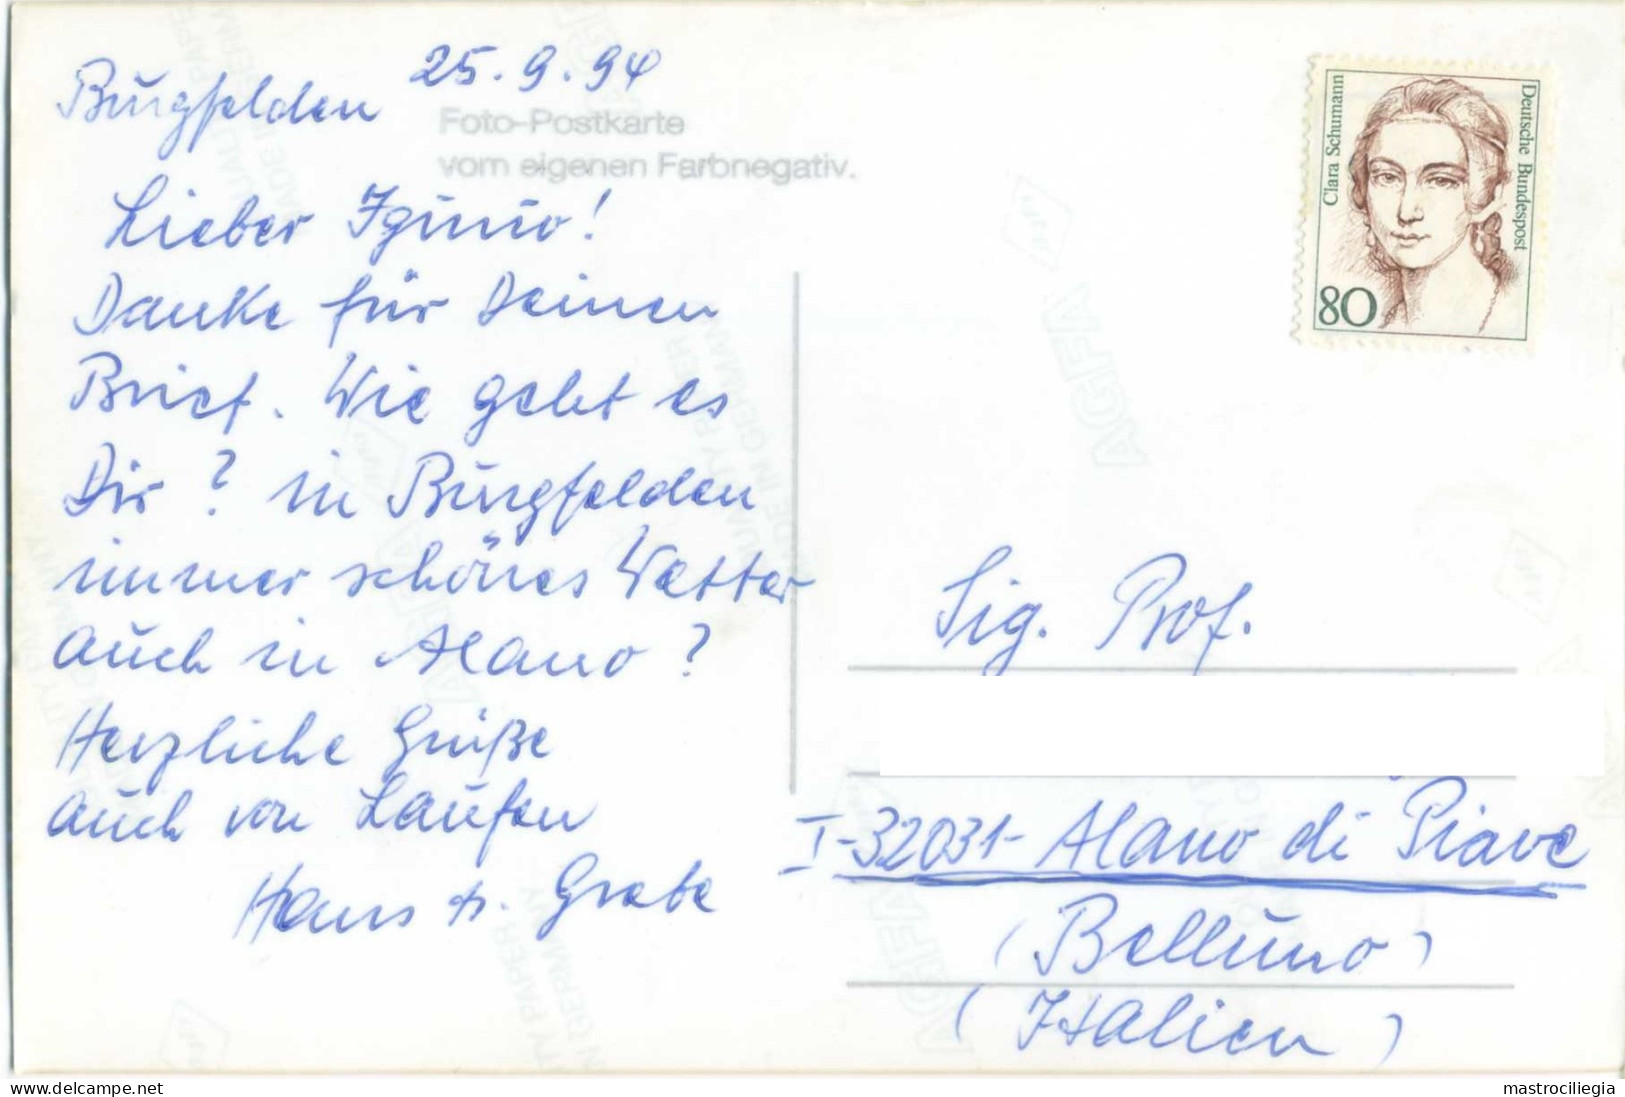 Burgfelden 25.9.94
Foto-Postkarte
vom eigenen Farbnegativ.
Lieber Iginio!
Danke für Deinen
Brief. Wie geht es
Dir? in Burgfelden
immer schönes Wetter
auch in Alano?
Herzliche Grüße
auch von Laufen
Hans
Clara Schumann
Deutsche Bundespost
80
Sig. Prof.
I-32031- Alano di Piave
(Belluno)
(Italien)
AGFA
AGFA
AGFA
mastrociliegia